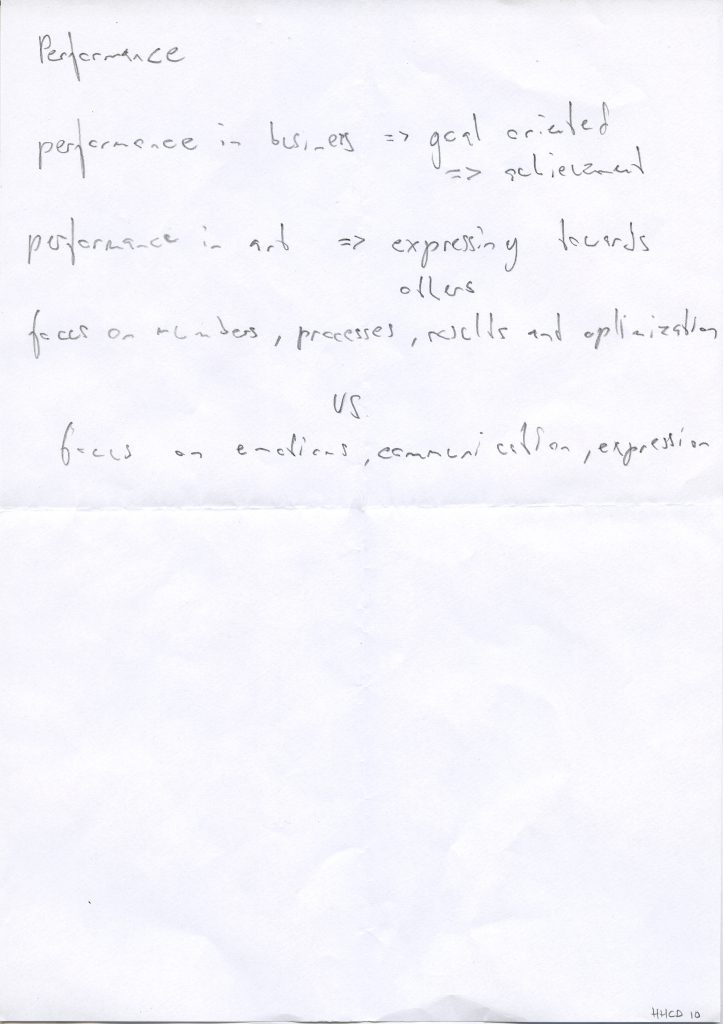 Performance
performance in business => goal oriented
=> achievement
performance in art => expressing towards
others
focus on numbers, processes, results and optimization
VS
focus on emotions, communication, expression
HHCD 10